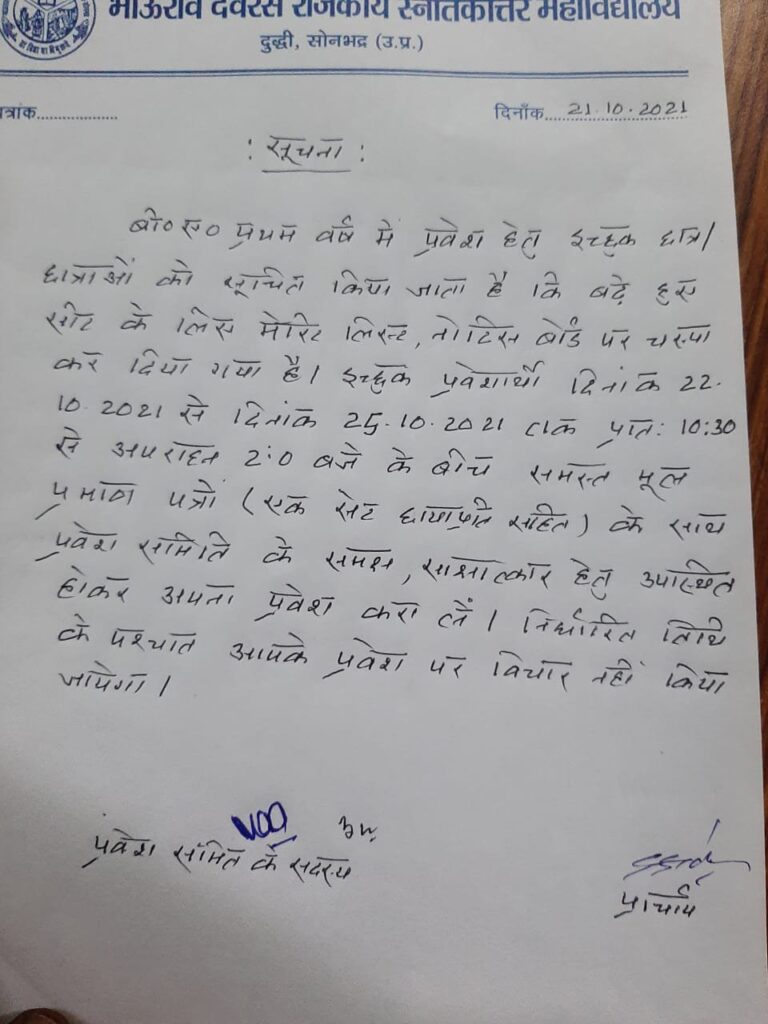 भाऊराव देवरस राजकीय स्नातकोत्तर महाविद्यालय
दुद्धी, सोनभद्र (उ.प्र.)
पत्रांक.................... दिनाँक... 21.10.2021
: सूचना :
बी०ए० प्रथम वर्ष में प्रवेश हेतु इच्छुक छात्र/
छात्राओं को सूचित किया जाता है कि बढ़े हुए
सीट के लिए मेरिट लिस्ट, नोटिस बोर्ड पर चस्पा
कर दिया गया है। इच्छुक प्रवेशार्थी दिनांक 22.
10.2021 से दिनांक 25.10.2021 तक प्रात: 10:30
से अपराहन 2:0 बजे के बीच समस्त मूल
प्रमाण पत्रों (एक सेट छायाप्रति सहित) के साथ
प्रवेश समिति के समक्ष, साक्षात्कार हेतु उपस्थित
होकर अपना प्रवेश करा लें। निर्धारित तिथि
के पश्चात आपके प्रवेश पर विचार नहीं किया
जायेगा।
प्रवेश समिति के सदस्य
प्राचार्य